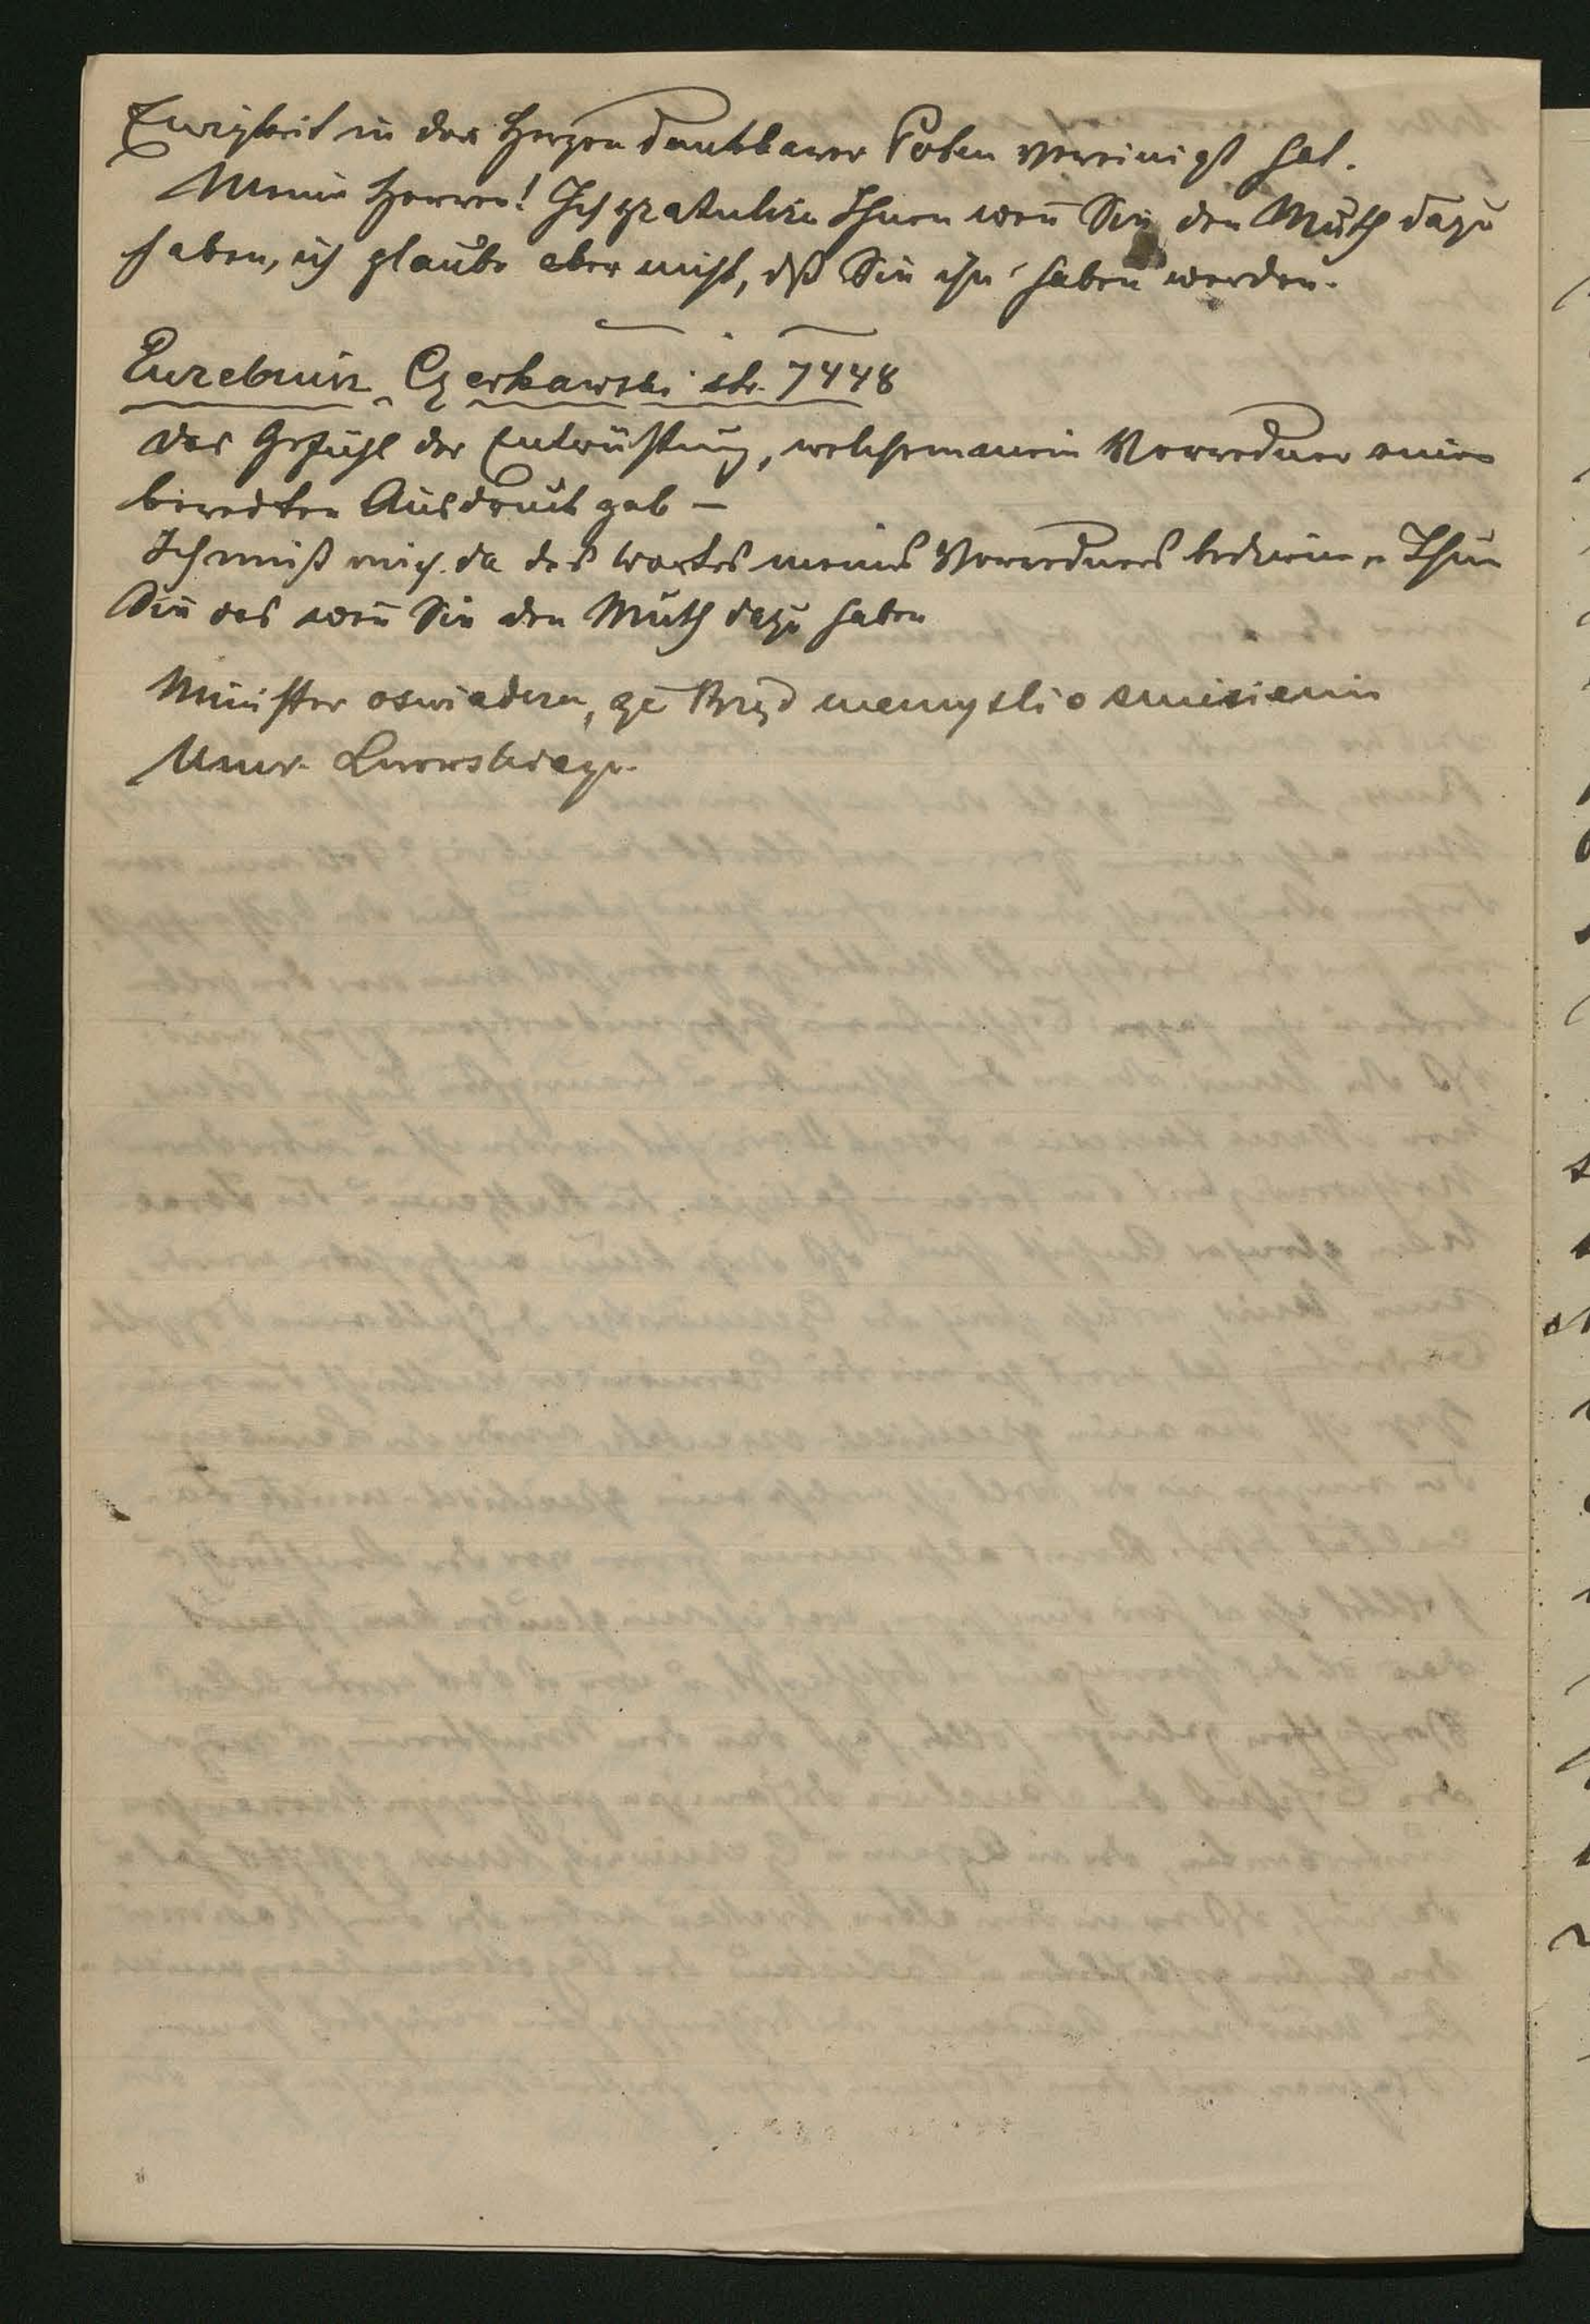 Ewigkeit in den Herzen dankbarer Polen vereinigt hat.
Meine Herren! Ich gratulire Ihnen wen̄ Sie den Muth dazu
haben, ich glaube aber nicht, dß Sie ihn haben werden.
Euzebiusz Czerkawski str. 7448
Das Gefühl der Entrüstung, welchem mein Vorredner einen
beredten Ausdruck gab —
Ich muß mich da des Wortes meines Vorredners bedienen Thun
Sie das wen̄ Sie den Muth dazu haben
Minister oswiadcza, że Rząd niemysli o zniesieniu
Uniw. Lwowskiego.